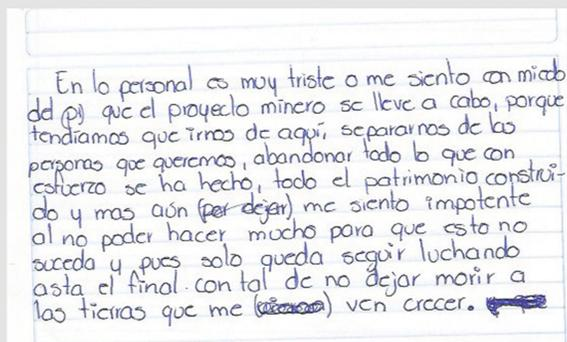 En lo personal es muy triste o me siento con miedo
del (p) que el proyecto minero se lleve a cabo, porque
tendiamos que irnos de aquí, separarnos de las
personas que queremos, abandonar todo lo que con
esfuerzo se ha hecho, todo el patrimonio construi-
do y mas aún (per dejar) me siento impotente
al no poder hacer mucho para que esto no
suceda y pues solo queda seguir luchando
asta el final. con tal de no dejar morir a
las tierras que me ven crecer.